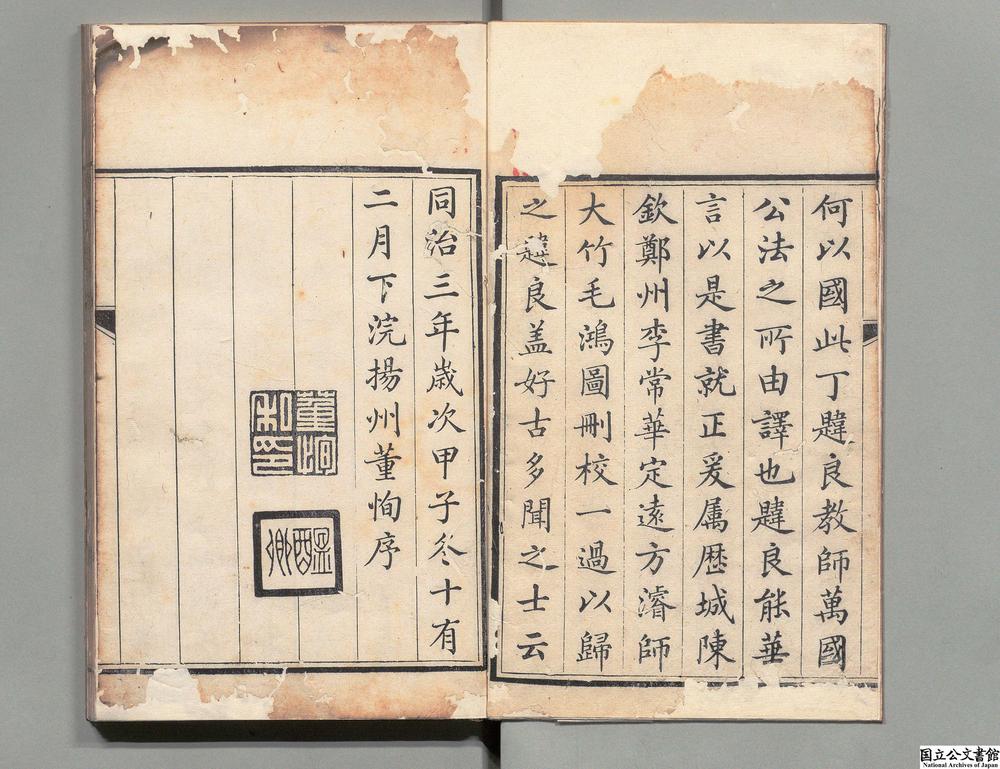 何以國此丁韙良教師萬國
公法之所由譯也韙良能華
言以是書就正爰属歴城陳
欽鄭州李常華定遠方濬師
大竹毛鴻圖刪校一過以歸
之韙良盖好古多聞之士云
同治三年歳次甲子冬十有
二月下浣揚州董恂序
董恂私印
醖卿
国立公文書館
National Archives of Japan